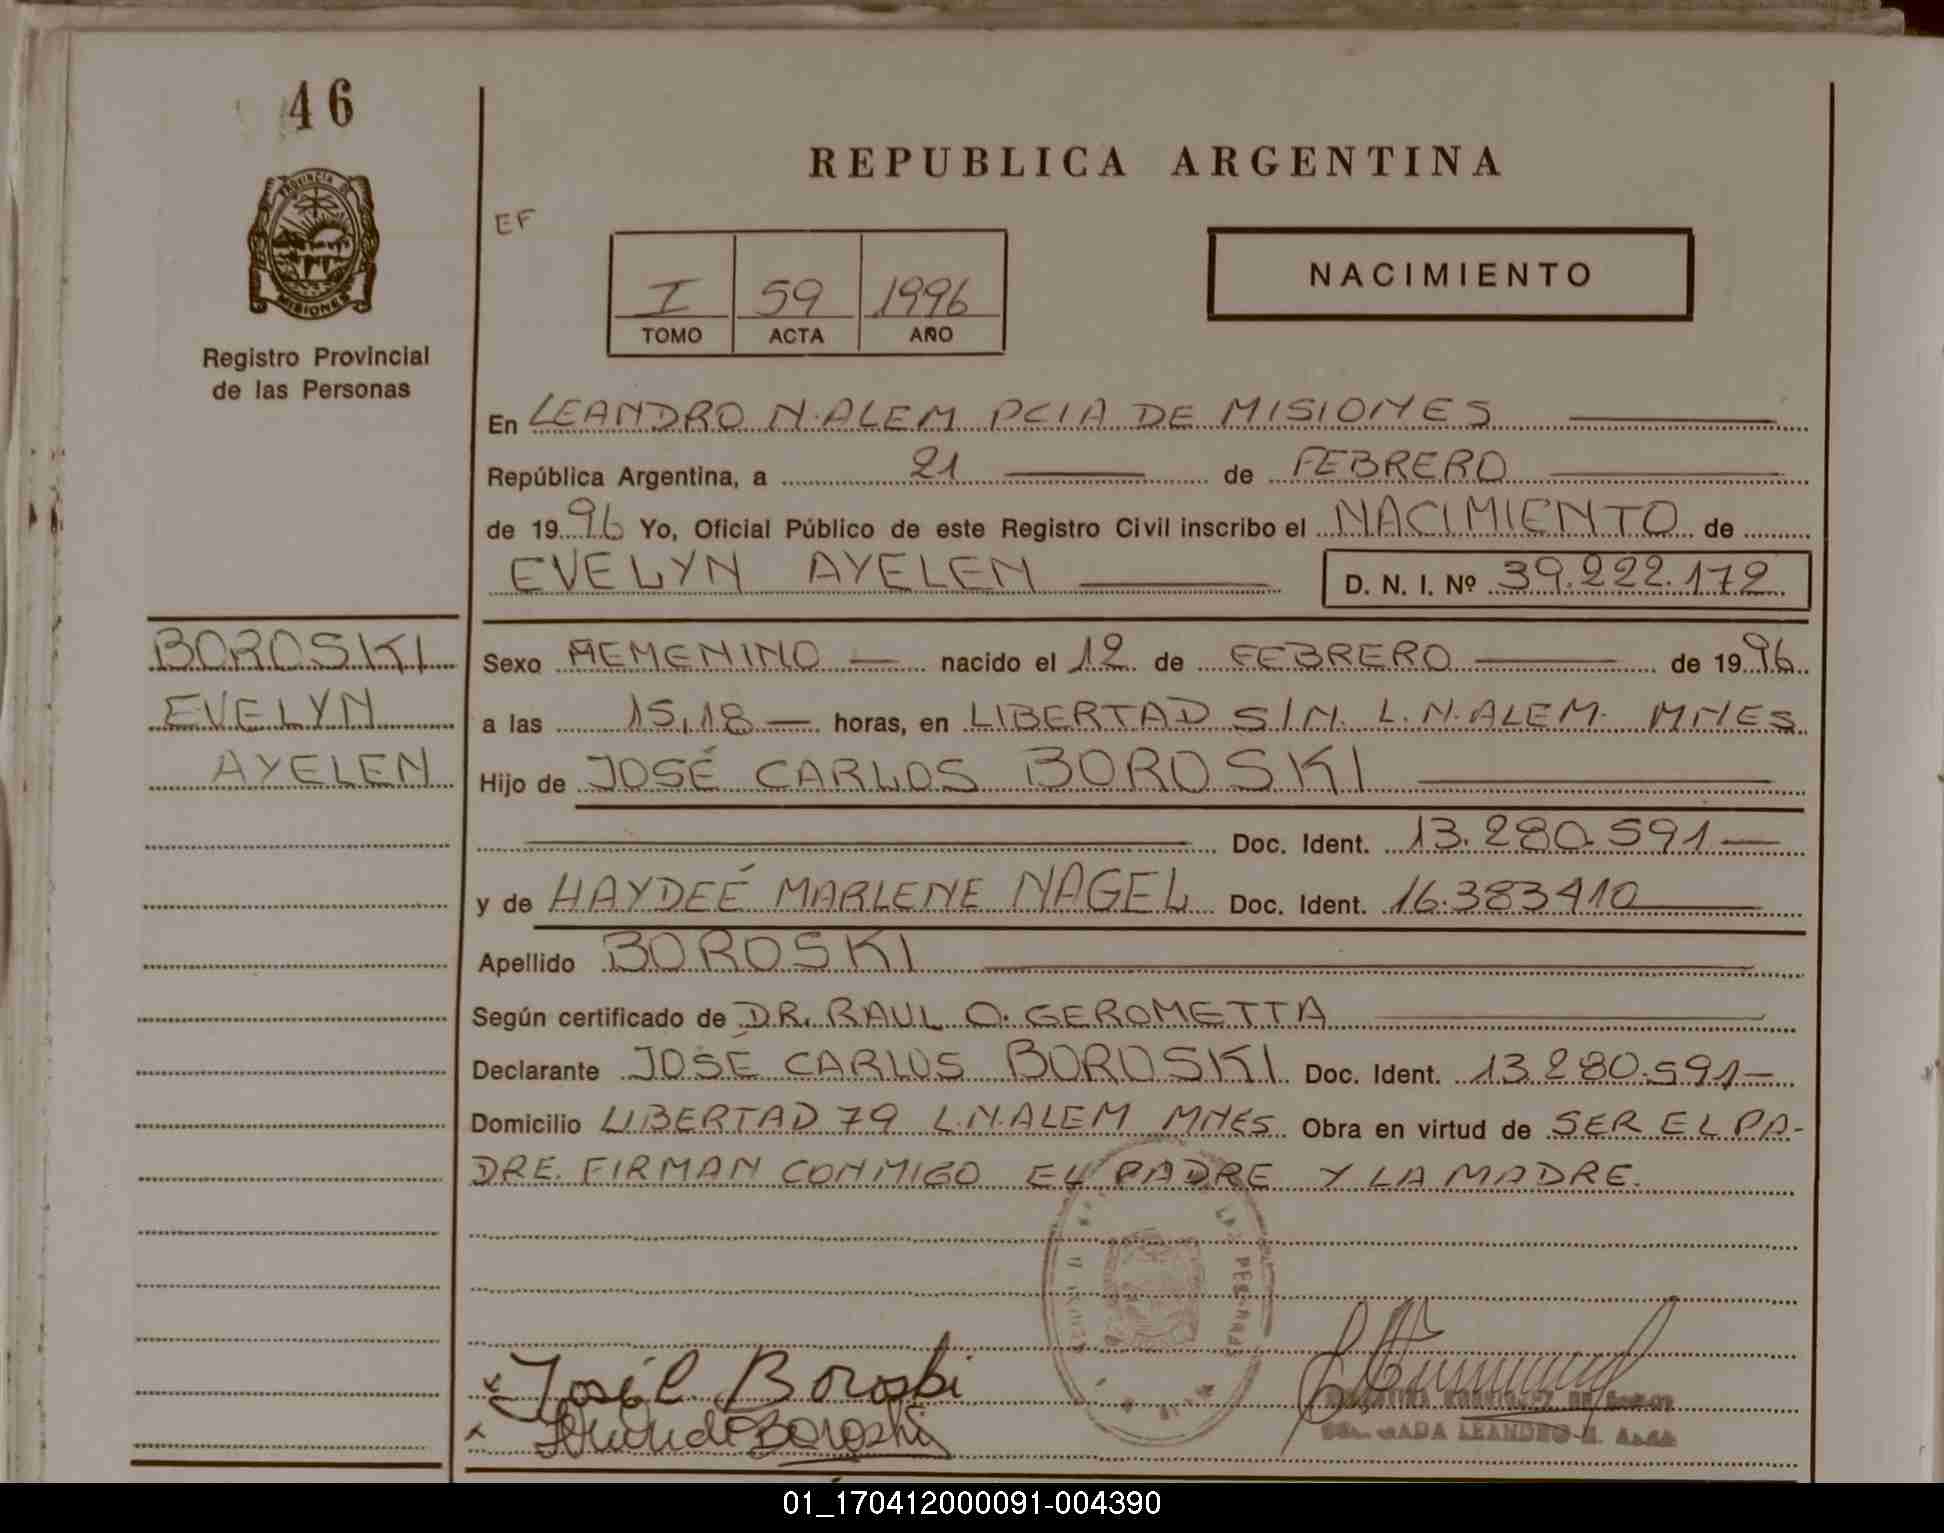 46
PROVINCIA DE
MISIONES
Registro Provincial
de las Personas
BOROSKI
EVELYN
AYELEN
REPUBLICA ARGENTINA
EF
I 59 1996
TOMO ACTA AÑO
NACIMIENTO
En LEANDRO N. ALEM PCIA DE MISIONES
República Argentina, a 21 de FEBRERO
de 1996 Yo, Oficial Público de este Registro Civil inscribo el NACIMIENTO de
EVELYN AYELEN D. N. I. Nº 39.222.172
Sexo FEMENINO nacido el 12 de FEBRERO de 1996
a las 15,18 horas, en LIBERTAD S/N. L.N. ALEM. MNES
Hijo de JOSÉ CARLOS BOROSKI
Doc. Ident. 13.280.591
y de HAYDEÉ MARLENE NAGEL Doc. Ident. 16.383410
Apellido BOROSKI
Según certificado de DR. RAUL O. GEROMETTA
Declarante JOSÉ CARLOS BOROSKI Doc. Ident. 13.280.591
Domicilio LIBERTAD 79 L.N. ALEM MNES Obra en virtud de SER EL PA-
DRE. FIRMAN CONMIGO EL PADRE Y LA MADRE.
LAS PERSONAS
José C. Boroski
Boroski
LEANDRO N. ALEM
01_170412000091-004390